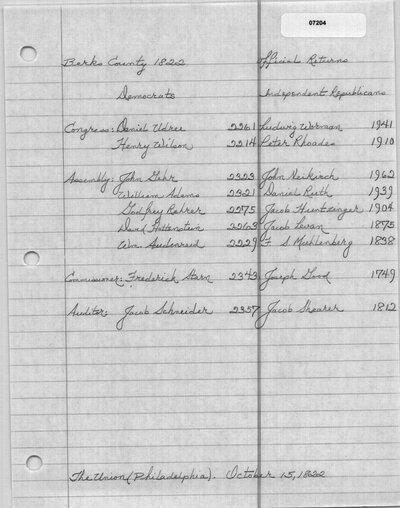 07204
Berks County 1822 Official Returns
Democrats Independent Republicans
Congress: Daniel Udree 2261 Ludwig Worman 1941
Henry Wilson 2214 Peter Rhoades 1910
Assembly: John Gehr 2323 John 1962
William Adams 2321 Daniel 1939
Godfrey Rohrer 2275 Jacob 1904
David Hottenstein 2263 Jacob Levan 1875
Wm. Audenried 2229 F S Muhlenberg 1838
Commissioner: Frederick Stern 2343 Joseph Good 1749
Auditor: Jacob Schneider 2357 Jacob Shearer 1812
The Union (Philadelphia). October 15, 1822